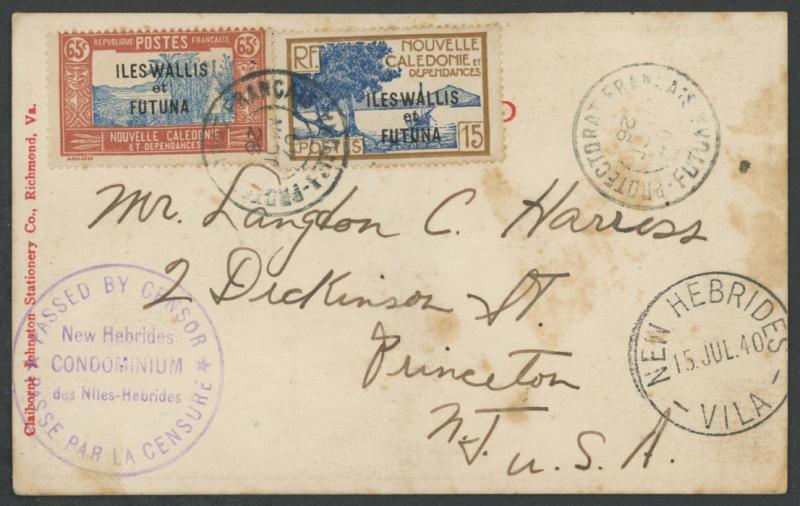 REPUBLIQUE POSTES FRANÇAISE
65c 65c
ILES WALLIS
et
FUTUNA
NOUVELLE CALEDONIE
ET DEPENDANCES
RF NOUVELLE
CALEDONIE ET
DEPENDANCES
ILES WALLIS
et
FUTUNA
POSTES 15
PROTECTORAT FRANÇAIS
26
FUTUNA
Mr. Langdon C. Harriss
2 Dickinson St.
Princeton
N.J. U.S.A.
Claiborne Johnston Stationery Co., Richmond, Va.
PASSED BY CENSOR
New Hebrides
CONDOMINIUM
des Nlles-Hebrides
PASSE PAR LA CENSURE
NEW HEBRIDES
15 JUL. 40
VILA